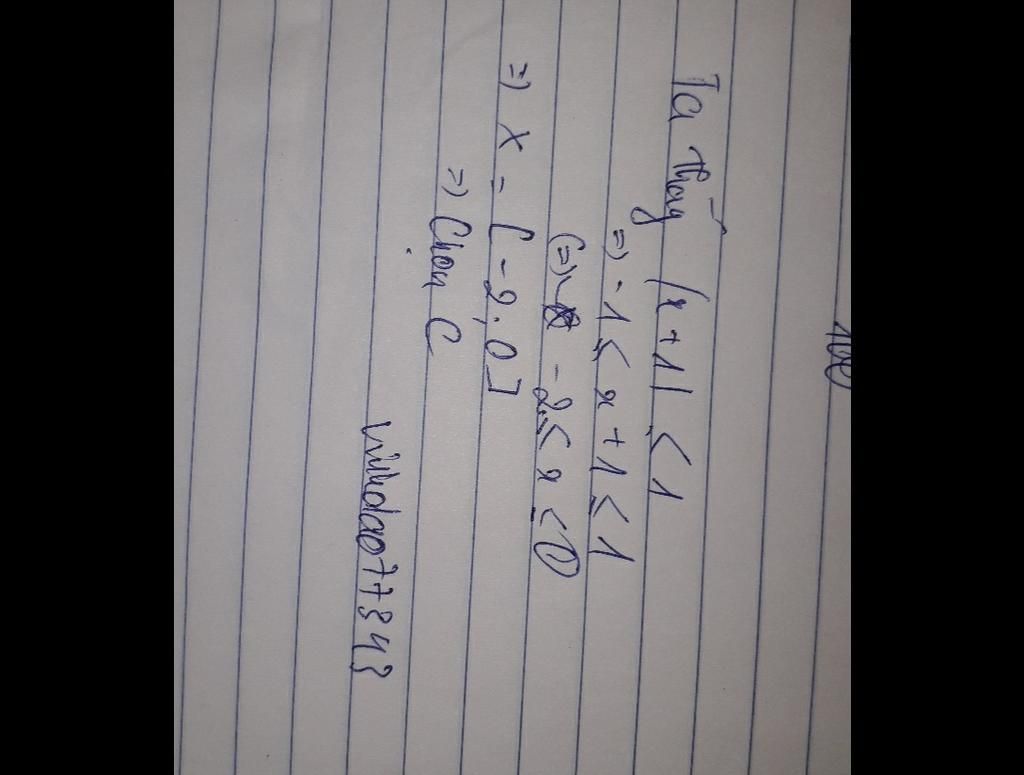 Ta thấy |x+1| < 1
=) -1 ≤ x+1 ≤ 1
(=) -2 ≤ x ≤ 0
=) X = [-2; 0]
=) Chọn C
vinhdao77343